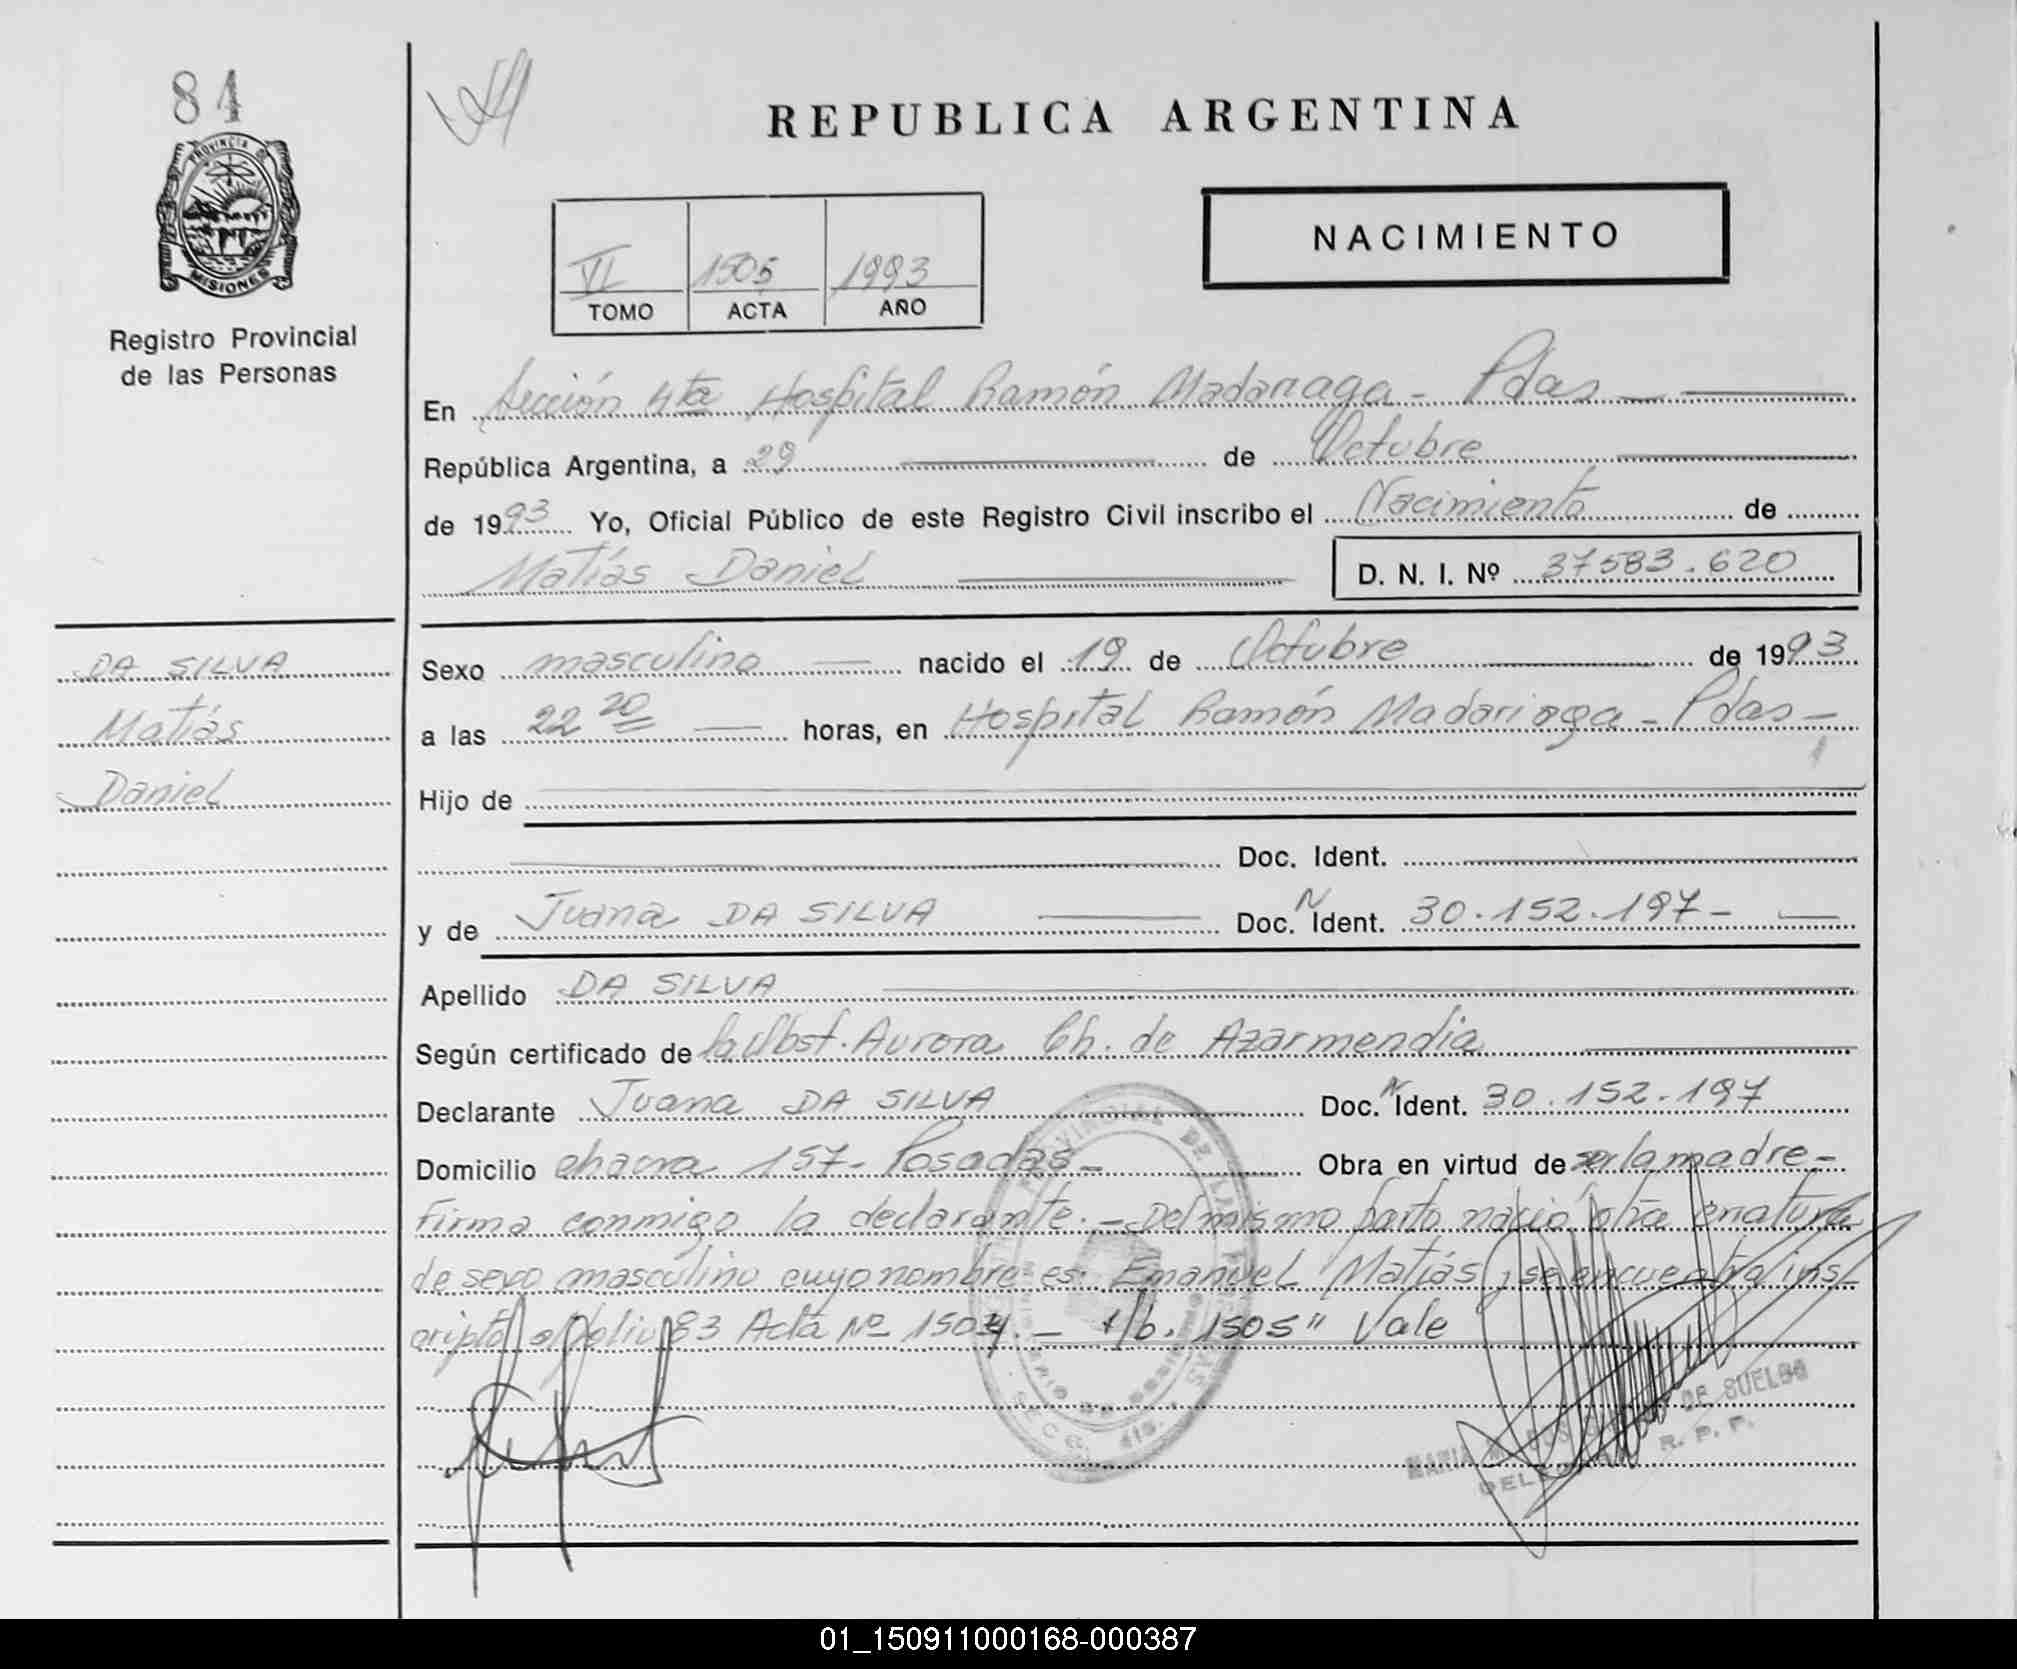 84
REPUBLICA ARGENTINA
PROVINCIA DE
MISIONES
Registro Provincial
de las Personas
NACIMIENTO
VI 1505 1993
TOMO ACTA AÑO
En Sección 4ta Hospital Ramón Madariaga - Pdas
República Argentina, a 29 de Octubre
de 1993 Yo, Oficial Público de este Registro Civil inscribo el Nacimiento de
Matías Daniel D. N. I. Nº 37583.620
DA SILVA
Matiás
Daniel
Sexo masculino nacido el 19 de Octubre de 1993
a las 22 20 horas, en Hospital Ramón Madariaga - Pdas -
Hijo de
y Doc. Ident.
y de Juana DA SILVA Doc. N Ident. 30.152.197-
Apellido DA SILVA
Según certificado de la Obst. Aurora Ch. de Azarmendia
Declarante Juana DA SILVA Doc. N Ident. 30.152.197
Domicilio chacra 157- Posadas - Obra en virtud de ser la madre -
Firma conmigo la declarante. - Del mismo parto nació otra criatura
de sexo masculino cuyo nombre es: Emanuel Matías, se encuentra ins
cripto folio 83 Acta Nº 1504. - 1505" Vale
MARIA DE SUELDO
R. P. P.
01_150911000168-000387